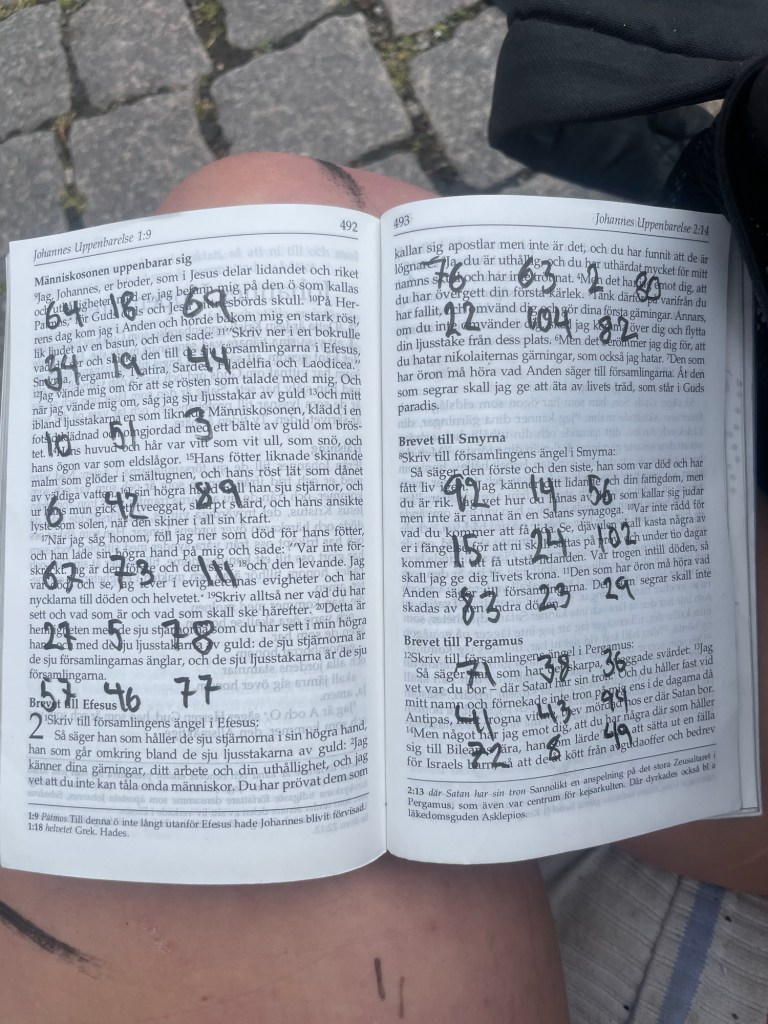 Johannes Uppenbarelse 1:9 492
Människosonen uppenbarar sig
⁹Jag, Johannes, er broder, som i Jesus delar lidandet och riket
är, jag på den ö som kallas
för Guds och skull. ¹⁰På Her-
rens dag kom jag i Anden och hörde bakom mig en stark röst,
lik ljudet av en basun, och den sade: ¹¹"Skriv ner i en bokrulle
och den till de församlingarna i Efesus,
Pergamus, Sardes, och Laodicea."
¹²Jag vände mig om för att se rösten som talade med mig. Och
när jag vände mig om, såg jag sju ljusstakar av guld ¹³och mitt
ibland ljusstakarna en som Människosonen, klädd i en
och med ett bälte av guld om brös-
tet. huvud och hår var vitt som vit ull, som snö, och
hans ögon var som eldslågor. ¹⁵Hans fötter liknade skinande
malm som glöder i smältugnen, och hans röst lät som dånet
av väldiga I sin högra han sju stjärnor, och
ur mun gick tveeggat, svärd, och hans ansikte
lyste som solen, när den skiner i all sin kraft.
¹⁷När jag såg honom, föll jag ner som död för hans fötter,
och han lade sin högra hand på mig och sade: "Var inte för-
Jag är den och den ¹⁸och den levande. Jag
var död och se, jag lever i evigheternas evigheter och har
nycklarna till döden och helvetet. ¹⁹Skriv alltså ner vad du har
sett och vad som är och vad som skall ske härefter. ²⁰Detta är
med de sju som du har sett i min högra
med de sju av guld: de sju stjärnorna är
de sju församlingarnas änglar, och de sju ljusstakarna är de sju
församlingarna.
Brevet till Efesus
2 ¹Skriv till församlingens ängel i Efesus:
Så säger han som håller de sju stjärnorna i sin högra hand,
han som går omkring bland de sju ljusstakarna av guld: ²Jag
känner dina gärningar, ditt arbete och din uthållighet, och jag
vet att du inte kan tåla onda människor. Du har prövat dem som
1:9 Patmos Till denna ö inte långt utanför Efesus hade Johannes blivit förvisad.
1:18 helvetet Grek. Hades.
64 18 69
34 19 44
10 51 3
6 42 89
67 73 11
27 5 78
57 46 77
493 Johannes Uppenbarelse 2:14
kallar sig apostlar men inte är det, och du har funnit att de är
du är och du har uthärdat mycket för mitt
namns och har inte ⁴Men det har jag mot dig, att
du har övergett din första kärlek. därför varifrån du
har fallit, omvänd dig och gör dina första gärningar. Annars,
om du inte omvänder jag över dig och flytta
din ljusstake från dess plats. ⁶Men det berömmer jag dig för, att
du hatar nikolaiternas gärningar, som också jag hatar. ⁷Den som
har öron må höra vad Anden säger till församlingarna. Åt den
som segrar skall jag ge att äta av livets träd, som står i Guds
paradis.
Brevet till Smyrna
⁸Skriv till församlingens ängel i Smyrna:
Så säger den förste och den siste, han som var död och har
fått liv ⁹Jag känner ditt och din fattigdom, men
du är rik. Jag vet hur du av som kallar sig judar
men inte är annat än en Satans synagoga. ¹⁰Var inte rädd för
vad du kommer att få lida. Se, djävulen skall kasta några av
er i fängelse för att ni på och under tio dagar
kommer få utstå lidanden. Var trogen intill döden, så
skall jag ge dig livets krona. ¹¹Den som har öron må höra vad
Anden säger till församlingarna. Den som segrar skall inte
skadas av den andra döden.
Brevet till Pergamus
¹²Skriv till församlingens ängel i Pergamus:
Så säger som har skarpa, svärdet. ¹³Jag
vet var du bor – där Satan har sin Och du håller fast vid
mitt namn och förnekade inte tron på mig ens i de dagarna då
Antipas, blev mördad hos er där Satan bor.
¹⁴Men något har jag emot dig, att du har några där som håller
sig till lära, han som lärde att sätta ut en fälla
för Israels barn, så att de åt kött från avgudaoffer och bedrev
2:13 där Satan har sin tron Sannolikt en anspelning på det stora Zeusaltaret i
Pergamus, som även var centrum för kejsarkulten. Där dyrkades också bl a
läkedomsguden Asklepios.
76 63 7 80
22 104 82
92 14 56
15 24 102
83 23 29
71 38 36
41 43 94
72 8 49